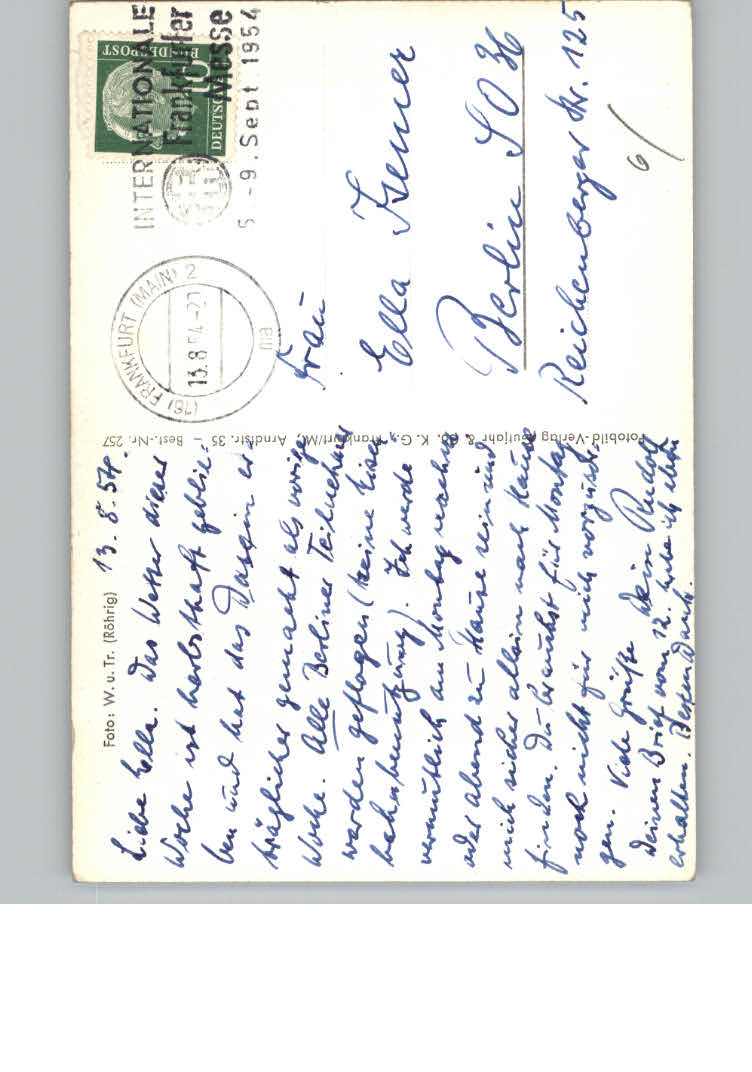 Foto: W. u. Tr. (Röhrig)
13.8.54.
Liebe Ella. Das Wetter dieser
Woche ist herbsthaft geblie-
ben und hat das Dasein er-
träglicher gemacht als vorige
Woche. Alle Berliner Teilnehmer
werden geflogen (keine Eisen-
bahnbenutzung). Ich werde
vermutlich am Montag nachm.
oder abend zu Hause sein und
mich sicher allein nach Hause
finden. Du brauchst für Montag
noch nicht für mich vorzusor-
gen. Viele Grüße Dein Rudolf
Deinen Brief vom 12. habe ich eben
erhalten. Besten Dank.
Fotobild-Verlag Gutjahr & Co. K. G., Frankfurt/M., Arndtstr. 35 – Best.-Nr. 257
DEUTSCHE
BUNDESPOST
10
INTERNATIONALE
Frankfurter
Messe
5.-9. Sept. 1954
(16) FRANKFURT (MAIN) 2
13.8.54-21
ma
Frau
Ella
Berlin SO 36
Reichenberger Str. 125
6/